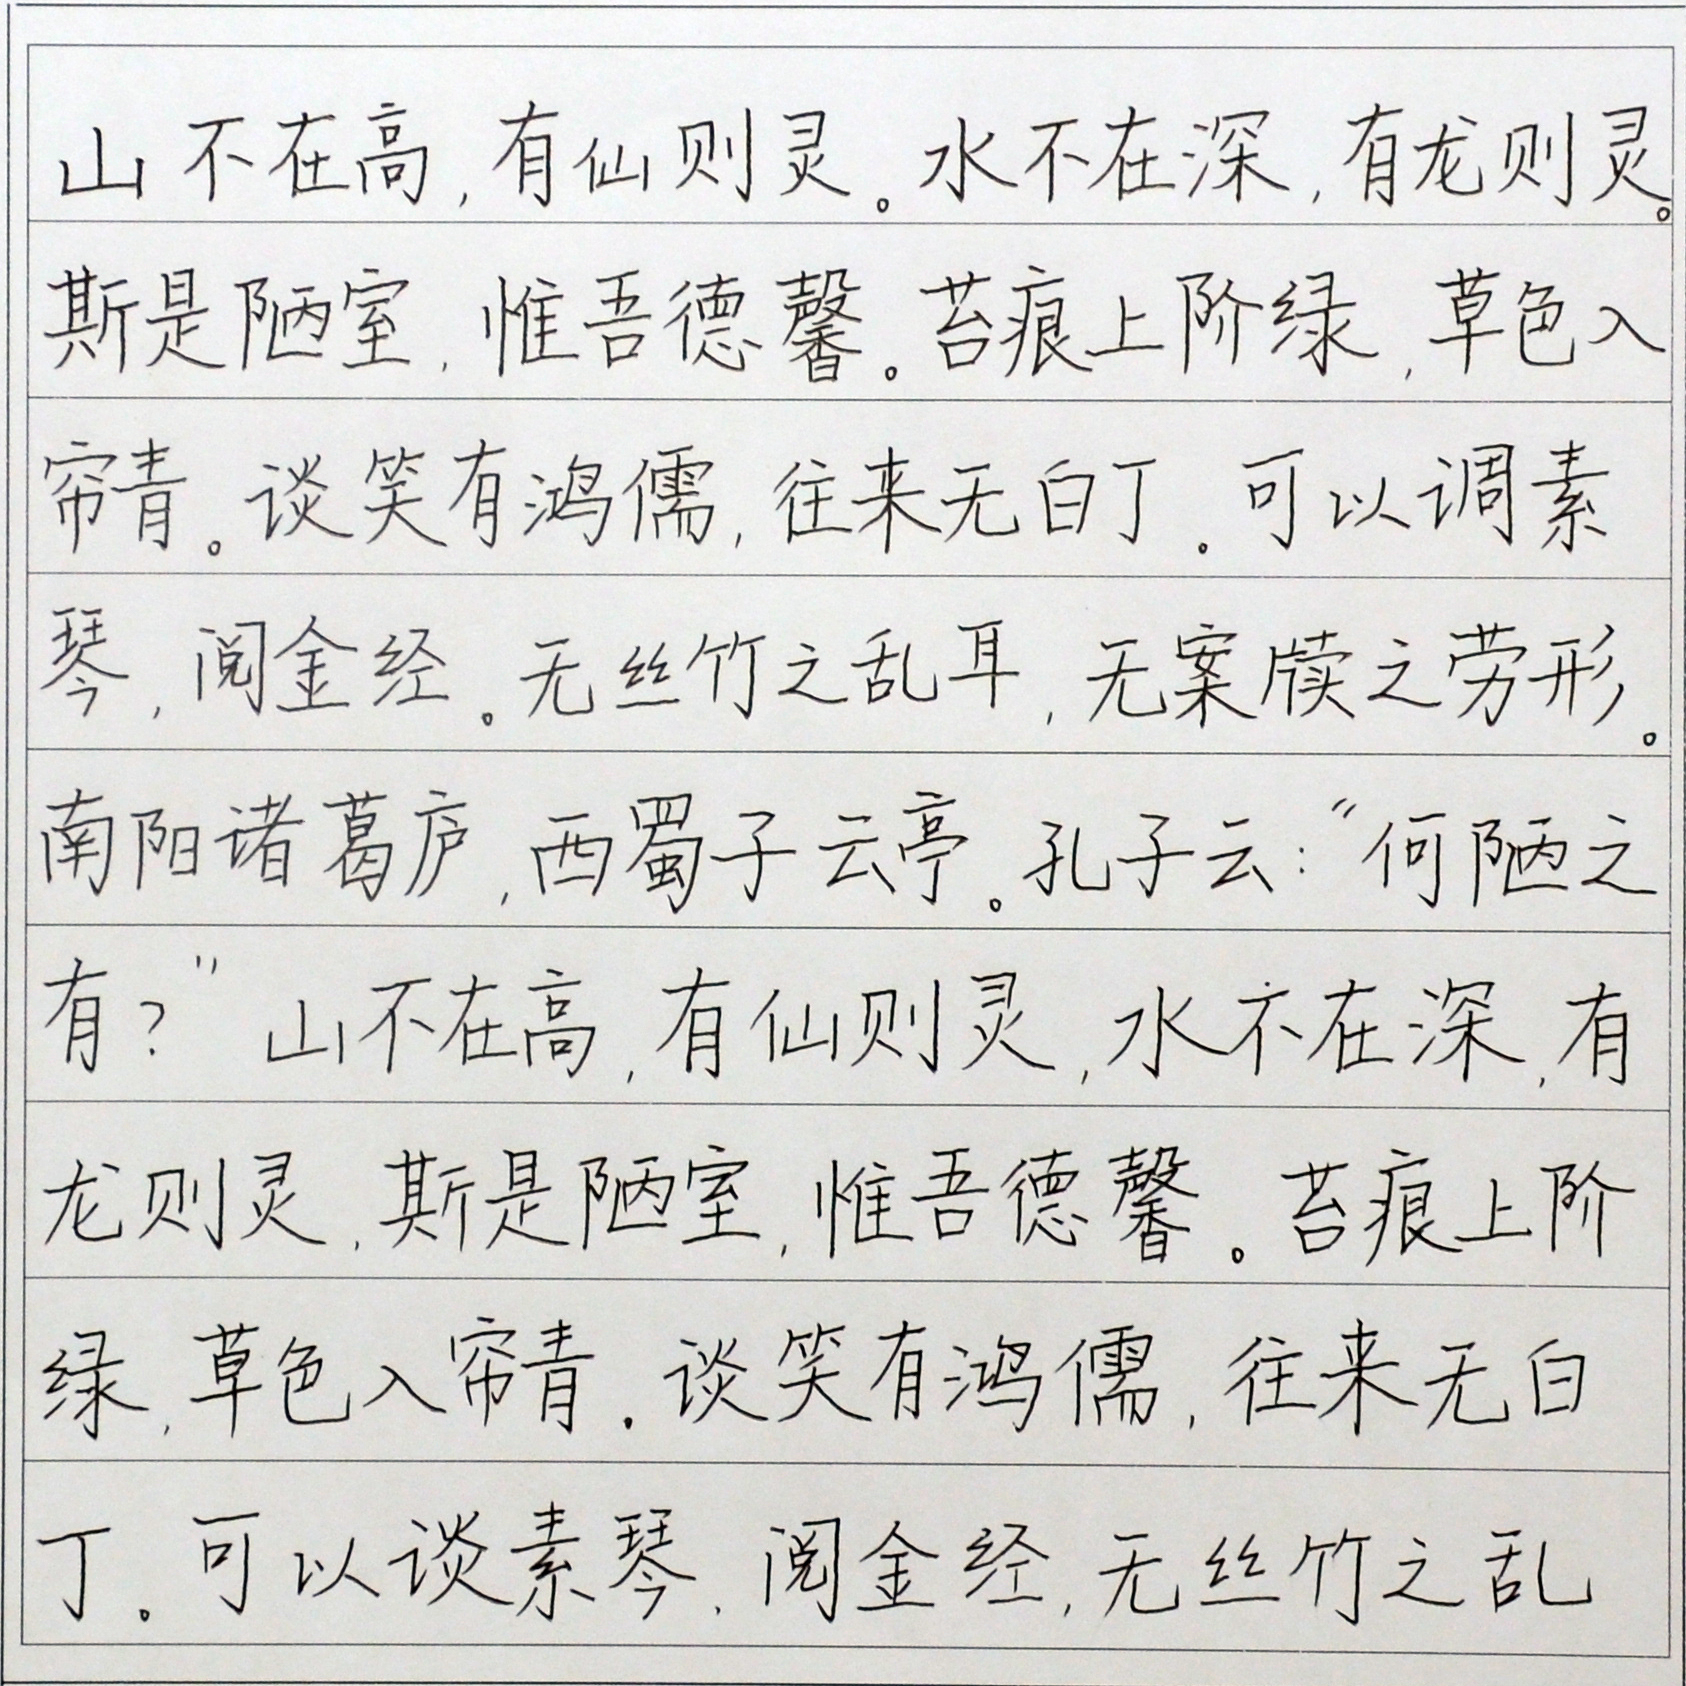 山不在高,有仙则灵。水不在深,有龙则灵。
斯是陋室,惟吾德馨。苔痕上阶绿,草色入
帘青。谈笑有鸿儒,往来无白丁。可以调素
琴,阅金经。无丝竹之乱耳,无案牍之劳形。
南阳诸葛庐,西蜀子云亭。孔子云:“何陋之
有?”山不在高,有仙则灵,水不在深,有
龙则灵,斯是陋室,惟吾德馨。苔痕上阶
绿,草色入帘青。谈笑有鸿儒,往来无白
丁。可以谈素琴,阅金经,无丝竹之乱